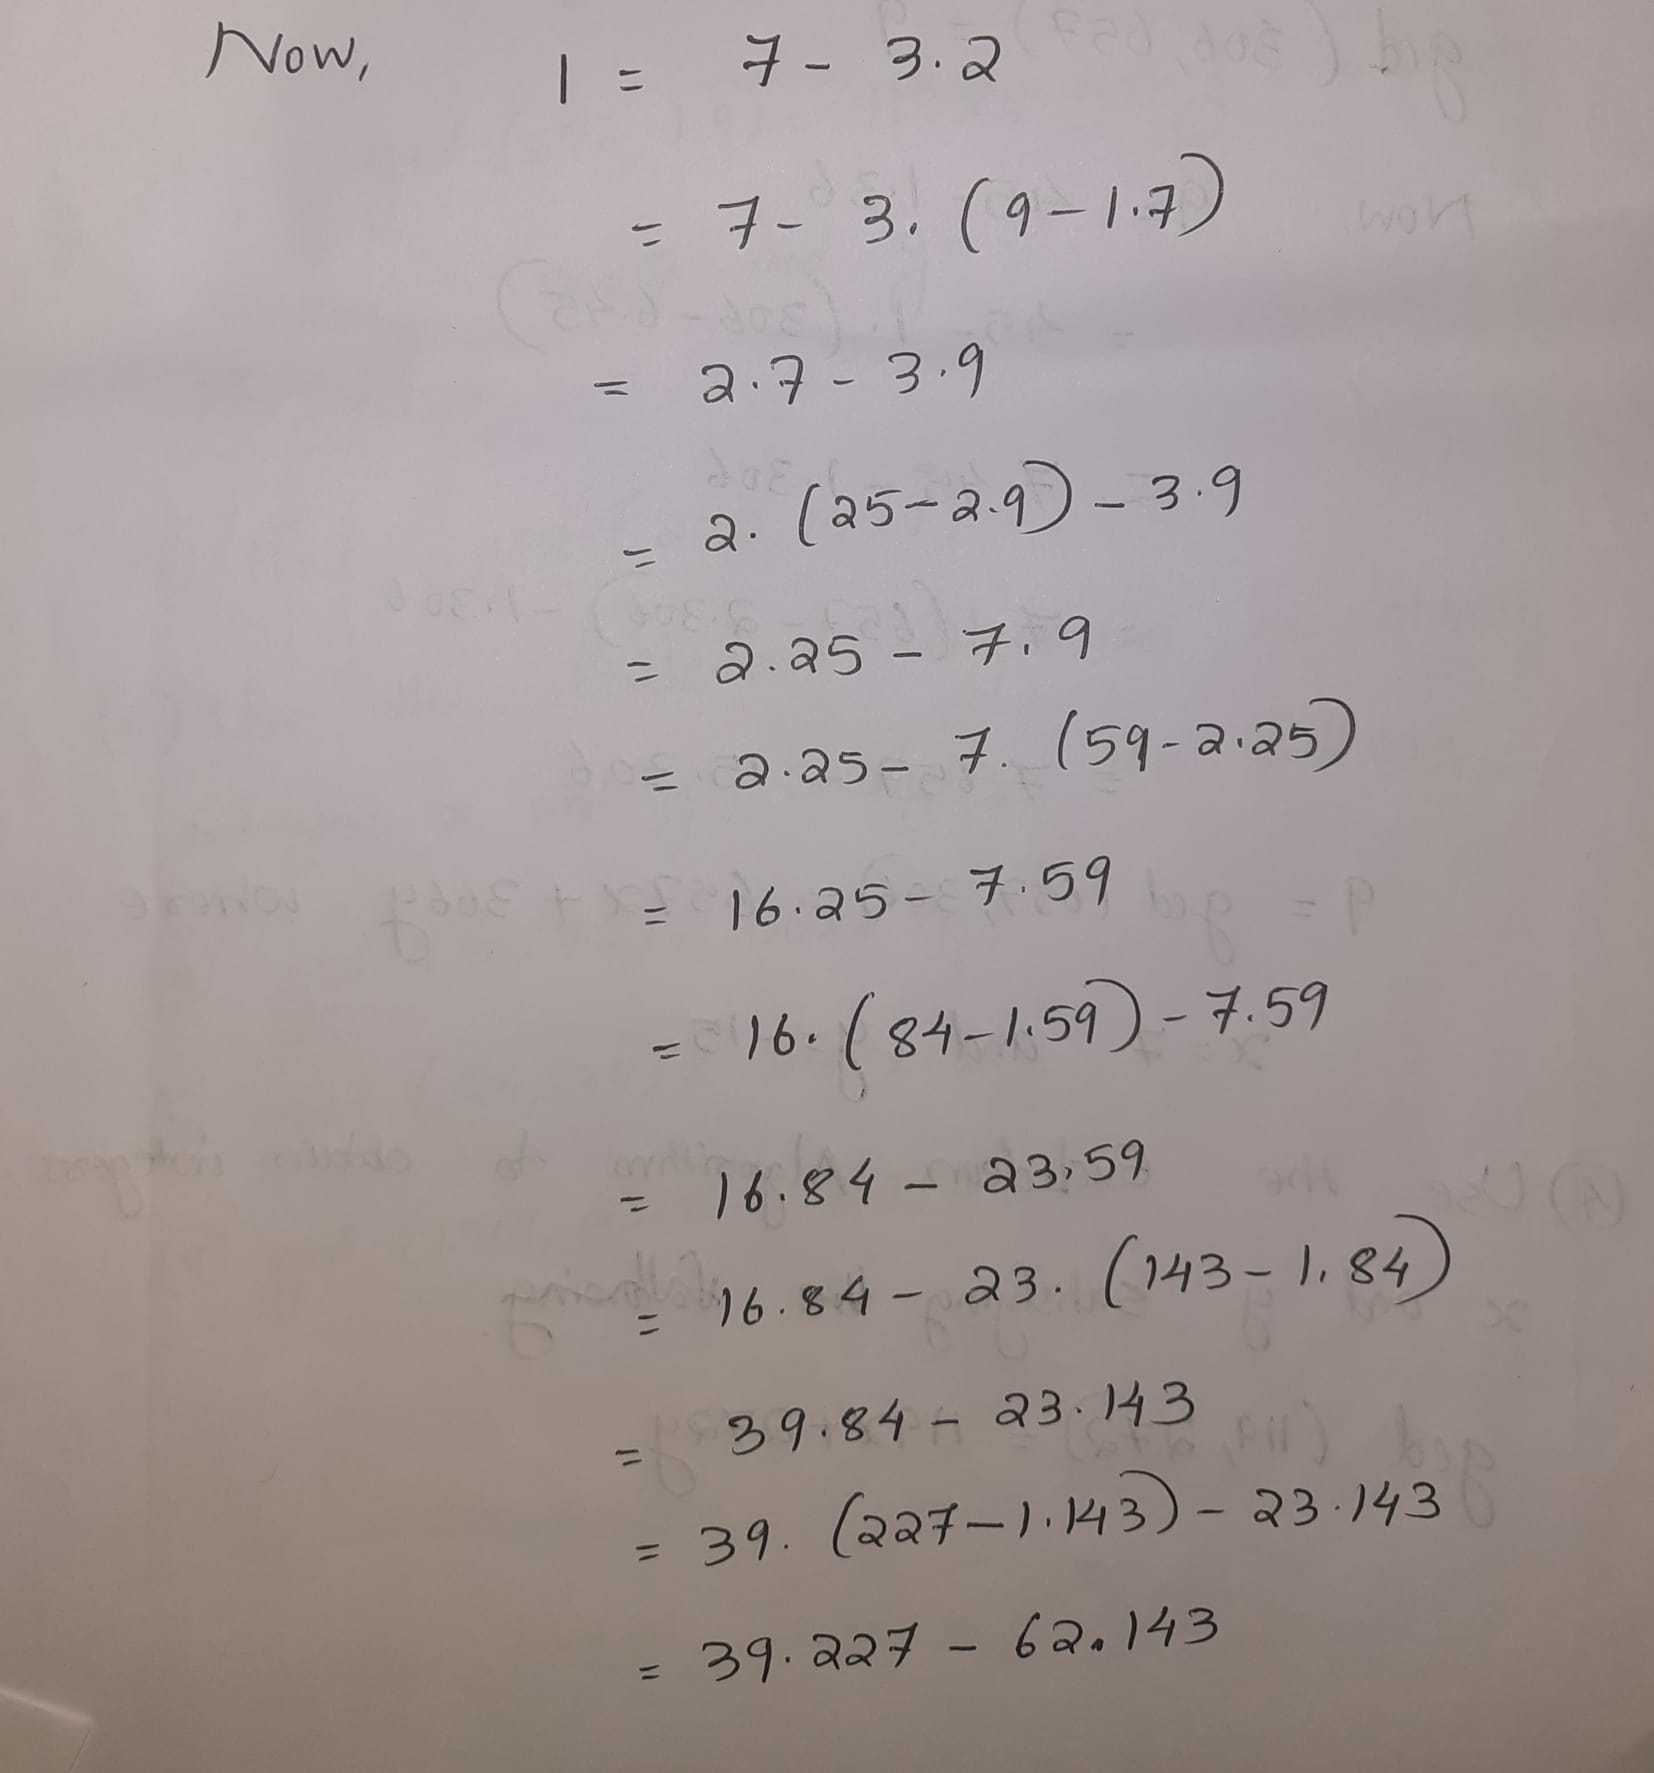 Now, 1 = 7 - 3.2
= 7 - 3. (9 - 1.7)
= 2.7 - 3.9
= 2. (25 - 2.9) - 3.9
= 2.25 - 7.9
= 2.25 - 7. (59 - 2.25)
= 16.25 - 7.59
= 16. (84 - 1.59) - 7.59
= 16.84 - 23.59
= 16.84 - 23. (143 - 1.84)
= 39.84 - 23.143
= 39. (227 - 1.143) - 23.143
= 39.227 - 62.143